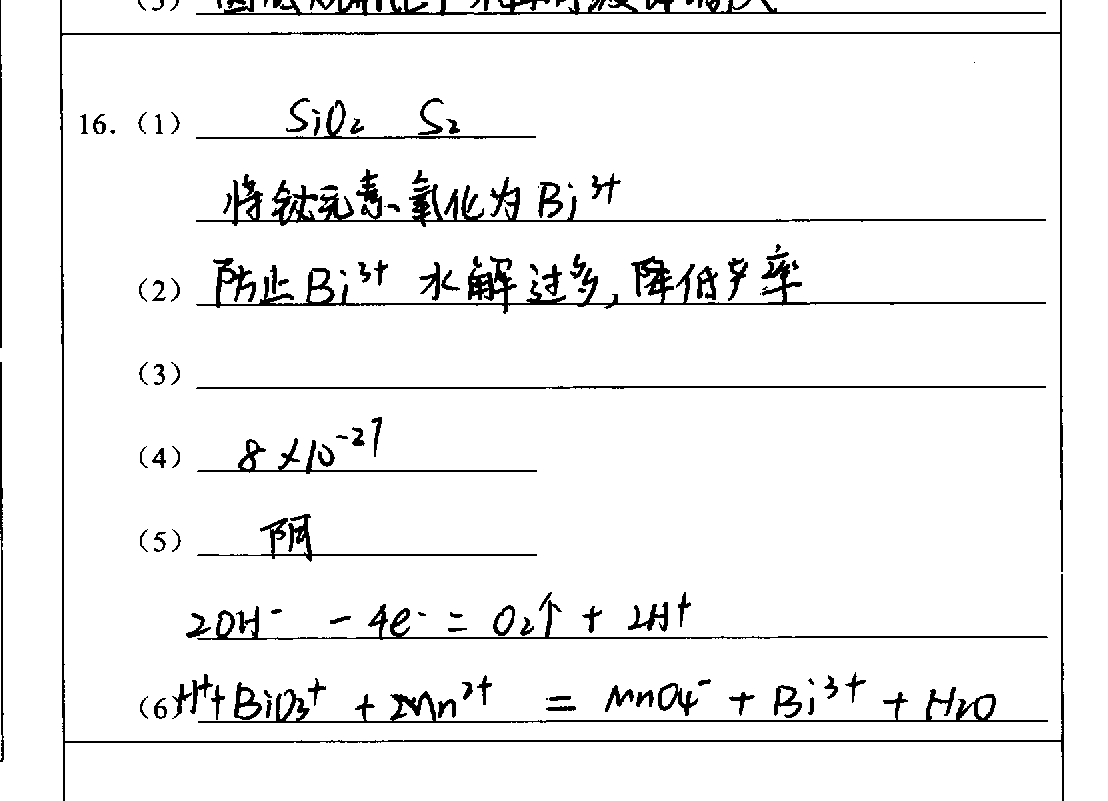 16. (1) SiO₂ S₂
将钛元素氧化为Bi³⁺
(2) 防止Bi³⁺水解过多,降低产率
(3)
(4) 8×10⁻²⁷
(5) 阴
2OH⁻ - 4e⁻ = O₂↑ + 2H⁺
(6) H⁺+BiO₃⁺ + 2Mn²⁺ = MnO₄⁻ + Bi³⁺ + H₂O